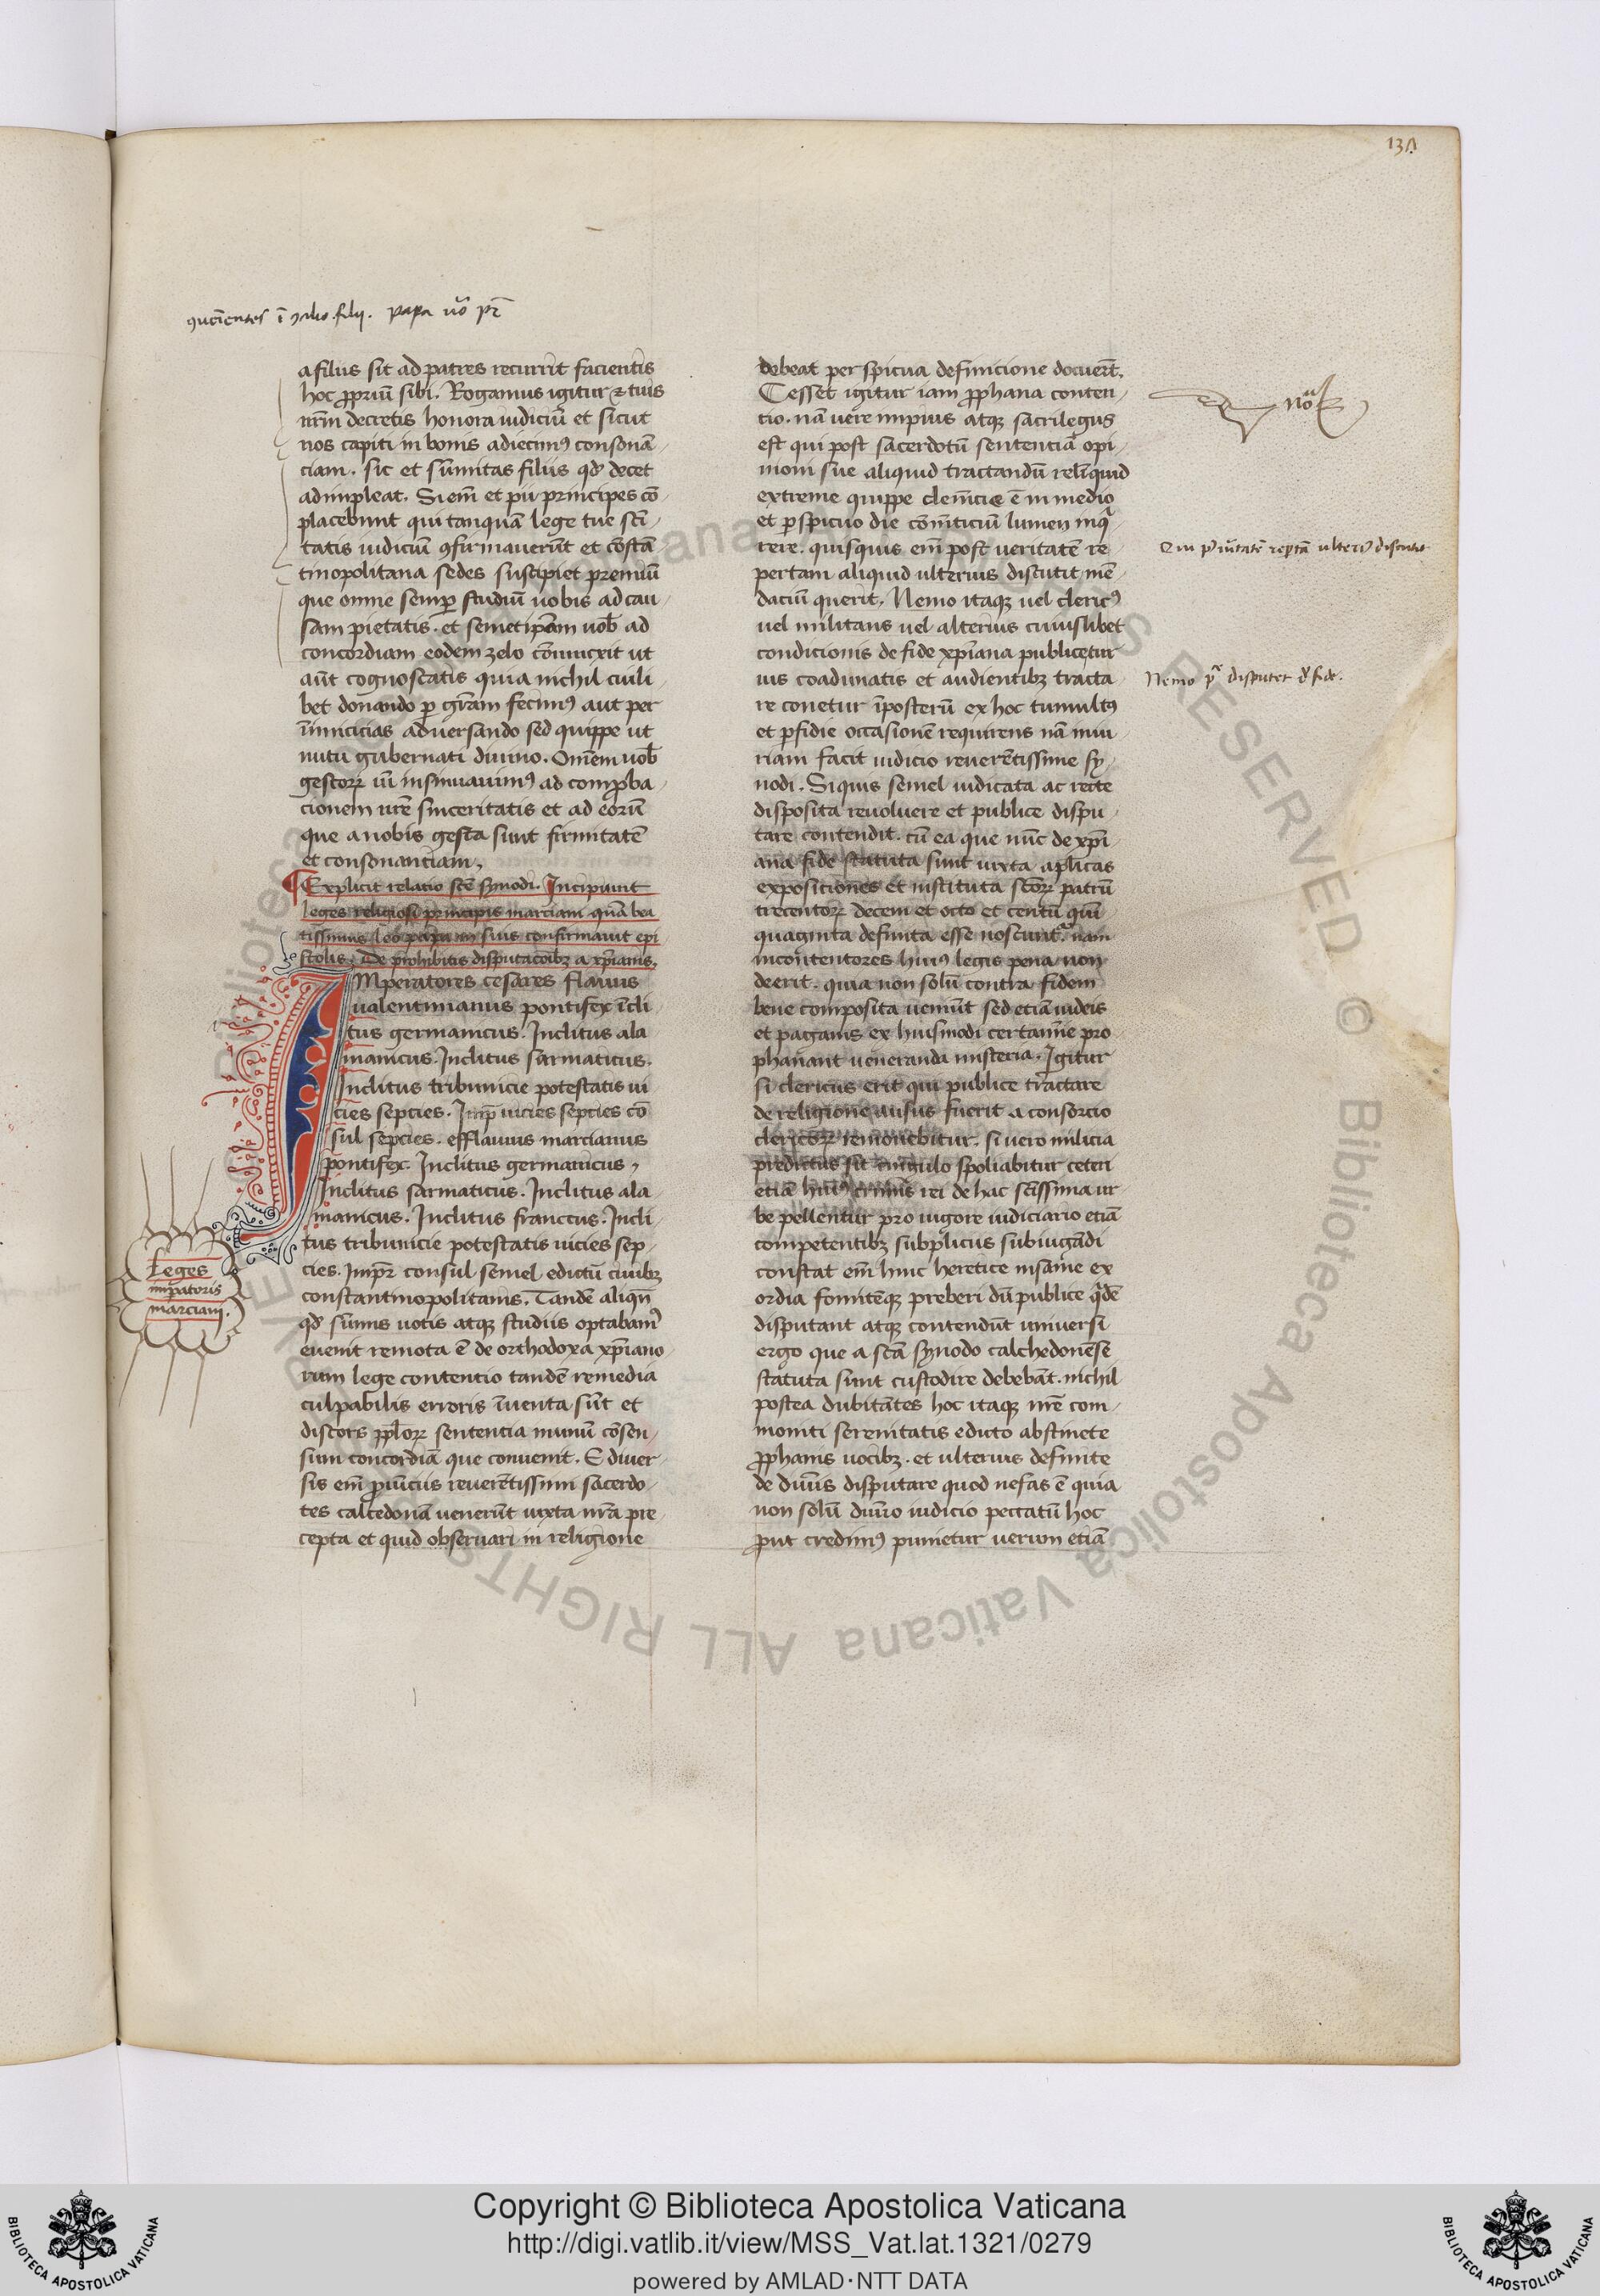 131
a filiis sit ad patres recurrit facientis
hoc ꝓpriū sibi. Rogamus igitur & tuis
nr̄m decretis honora iudiciū et sicut
nos capiti in bonis adiecimꝰ consonā
ciam. sic et sūmitas filiis qd̓ decet
adimpleat. Si em̄ et pii principes cō
placebunt qui tanquā lege tue sc̄i
tatis iudiciū ꝯfirmauerūt et cōstā
tinopolitana sedes suscipiet premiū
que omne semꝑ studiū uobis ad cau
sam pietatis. et semetip̄am uob̄ ad
concordiam eodem zelo cōiunxit ut
aūt cognoscatis quia nichil ciuili
bet donando ꝑ gr̄am fecimꝰ aut per
īimicicias aduersando sed quippe ut
nutu gubernati diuino. Om̄em uob̄
gestoꝝ uī insinuauimꝰ ad comꝓba
cionem ure sinceritatis et ad eorū
que a nobis gesta sunt firmitatē
et consonanciam.
Explicit relatio sc̄e synodi. Incipiunt
leges religiosi principis marciani quā bea
tissimus leo papa in suis confirmauit epi
stolis. De prohibitis disputacōibꝫ a xp̄ianis.
Imperatores cesares flauius
ualentinianus pontifex īcli
tus germanicus. Inclitus ala
manicus. Inclitus sarmaticus.
Inclitus tribunicie potestatis ui
cies septies. Imp̄ uicies septies cō
sul septies. et flauius marcianus
pontifex. Inclitus germanicus,
Inclitus sarmaticus. Inclitus ala
manicus. Inclitus francus. Incli
tus tribunicie potestatis uicies sep
cies. Imp̄r consul semel edictū ciuibꝫ
constantinopolitanis. Tandē aliqn̄
qd̓ sūmis uotis atqꝫ studiis optabamꝰ
euenit remota ē de orthodoxa xp̄iano
rum lege contentio tandē remedia
culpabilis erroris īuenta sūt et
discors pp̄loꝝ sententia in unū cōsen
sum concordiā que conuenit. E diuer
sis em̄ ꝓuīciis reuerētissimi sacerdo
tes calcedonā uenerūt iuxta nr̄a pre
cepta et quid obseruari in religione
Leges
imꝑatoris
marciani.
debeat perspicua definicione docuerūt.
Cesset igitur iam ꝓphana conten
tio. nā uere impius atqꝫ sacrilegus
est qui post sacerdotū sententiā opi
nioni sue aliquid tractandū relīquid
extreme quippe clem̄cie ē in medio
et ꝑspicuo die com̄ticiū lumen inq̄
rere. quisquis em̄ post ueritatē re
pertam aliquid ulterius discutit mē
daciū querit. Nemo itaqꝫ uel clericꝰ
uel militans uel alterius cuiuslibet
condicionis de fide xp̄iana publicetur
ius coadunatis et audientibꝫ tracta
re conetur īposterū ex hoc tumultꝰ
et ꝑfidie occasionē requirens nā iniu
riam facit iudicio reuerētissime sy
nodi. Si quis semel iudicata ac recte
disposita reuoluere et publice dispu
tare contendit. cū ea que nūc de xp̄i
ana fide statuta sunt iuxta ap̄licas
exposiciones et instituta sc̄oꝝ patrū
trecentoꝝ decem et octo et centū qui
quaginta definita esse noscunt̄. nam
in contentores huiꝰ legis pena non
deerit. quia non solū contra fidem
bene composita ueniūt sed etiā iudeis
et paganis ex huiusmodi certamīe pro
phanant ueneranda misteria. Igitur
si clericus erit qui publice tractare
de religione ausus fuerit a consorcio
clericoꝝ remouebitur. si uero milicia
predictus sit cingulo spoliabitur ceteri
etiā huiꝰ criminis rei de hac sc̄issima ur
be pellentur pro uigore iudiciario etiā
competentibꝫ suppliciis subiugādi
constat em̄ hinc heretice insanie ex
ordia fomitēqꝫ preberi dū publice q̄dē
disputant atqꝫ contendūt uniuersi
ergo que a sc̄a synodo calchedonēse
statuta sunt custodire debebāt. nichil
postea dubitātes hoc itaqꝫ nr̄e com
moniti serenitatis edicto abstinete
ꝓphanis uocibꝫ. et ulterius definite
de diuīs disputare quod nefas ē quia
non solū diuīo iudicio peccatū hoc
ꝓut credimꝰ punietur uerum etiā
Nemo p̄ disputet de fide.
Copyright © Biblioteca Apostolica Vaticana
http://digi.vatlib.it/view/MSS_Vat.lat.1321/0279
powered by AMLAD·NTT DATA
BIBLIOTECA APOSTOLICA VATICANA
BIBLIOTECA APOSTOLICA VATICANA